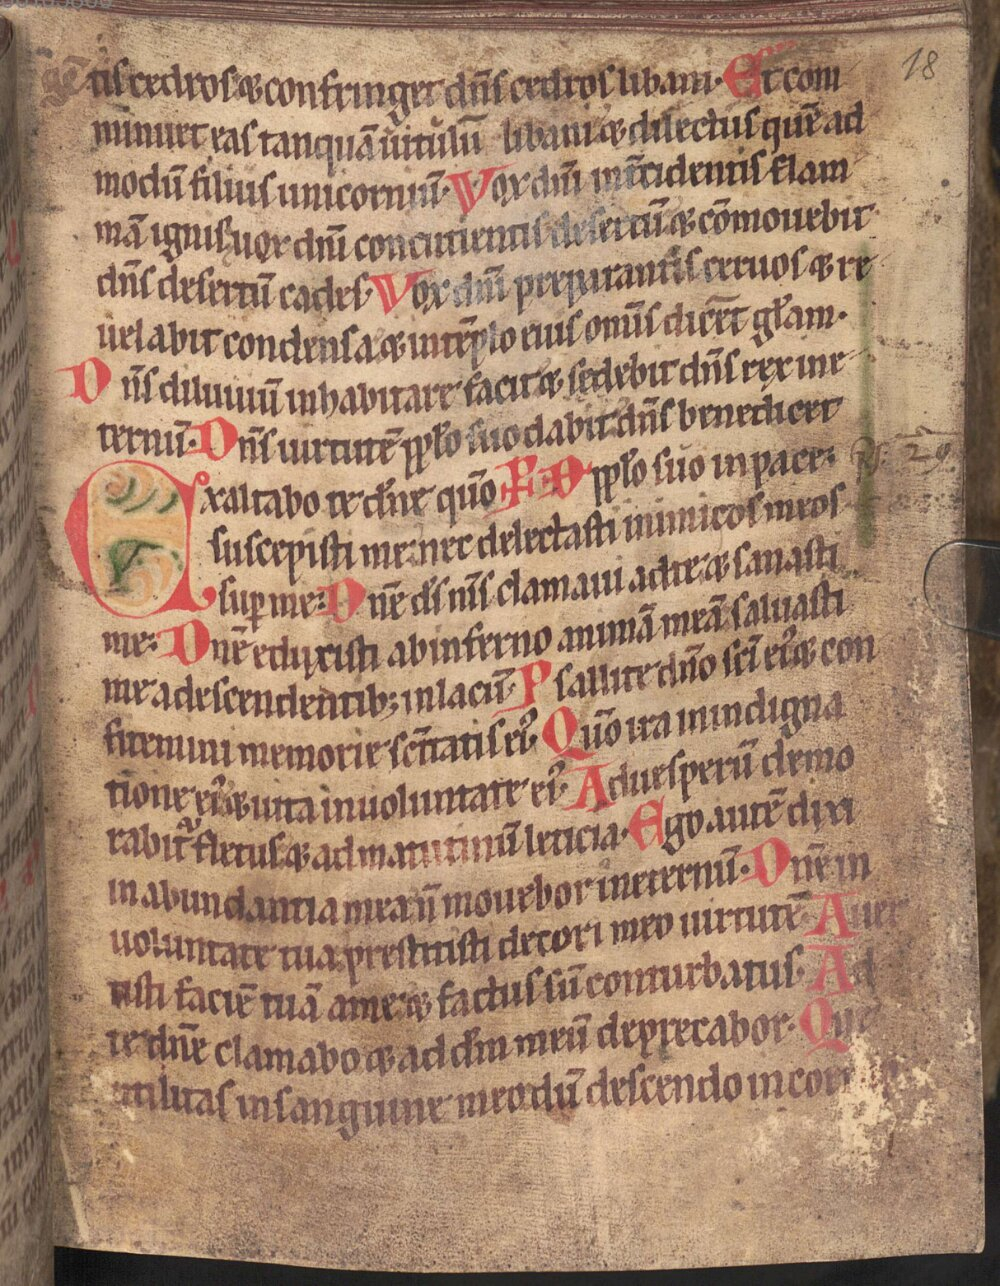 18
tis cedros & confringet dn̄s cedros libani. Et com
minuet eas tanquā uitulū libani & dilectus quē ad
modū filius unicorniū. Vox dn̄i int̄cidentis flam
mā ignis uox dn̄i concutientis desertū & cōmouebit
dn̄s desertū cades. Vox dn̄i preparantis ceruos & re
uelabit condensa & in tēplo eius om̄s dicēt gl̄am.
Dn̄s diluuiū inhabitare facit & sedebit dn̄s rex in e
ternū. Dn̄s uirtutē pp̄lo suo dabit dn̄s benedicet
Exaltabo te dn̄e quō pp̄lo suo in pace:
Ps. 29.
suscepisti me: nec delectasti inimicos meos
sup̄ me: Dn̄e ds̄ ms̄ clamaui ad te & sanasti
me: Dn̄e eduxisti ab inferno animā meā saluasti
me a descendentib; in lacū. Psallite dn̄o sc̄i ei' & con
fitemini memorie sc̄itatis ei'. Quō ira in indigna
tione ei' & uita in uoluntate ei'. Ad uesperū demo
rabit fletus & ad matutinū leticia. Ego autē dixi
in abundantia mea ū mouebor in eternū. Dn̄e in
uoluntate tua prestitisti decori meo uirtutē. Auer
tisti faciē tuā a me & factus sū conturbatus. Ad
te dn̄e clamabo & ad dm̄ meū deprecabor. Que
utilitas in sanguine meo dū descendo in